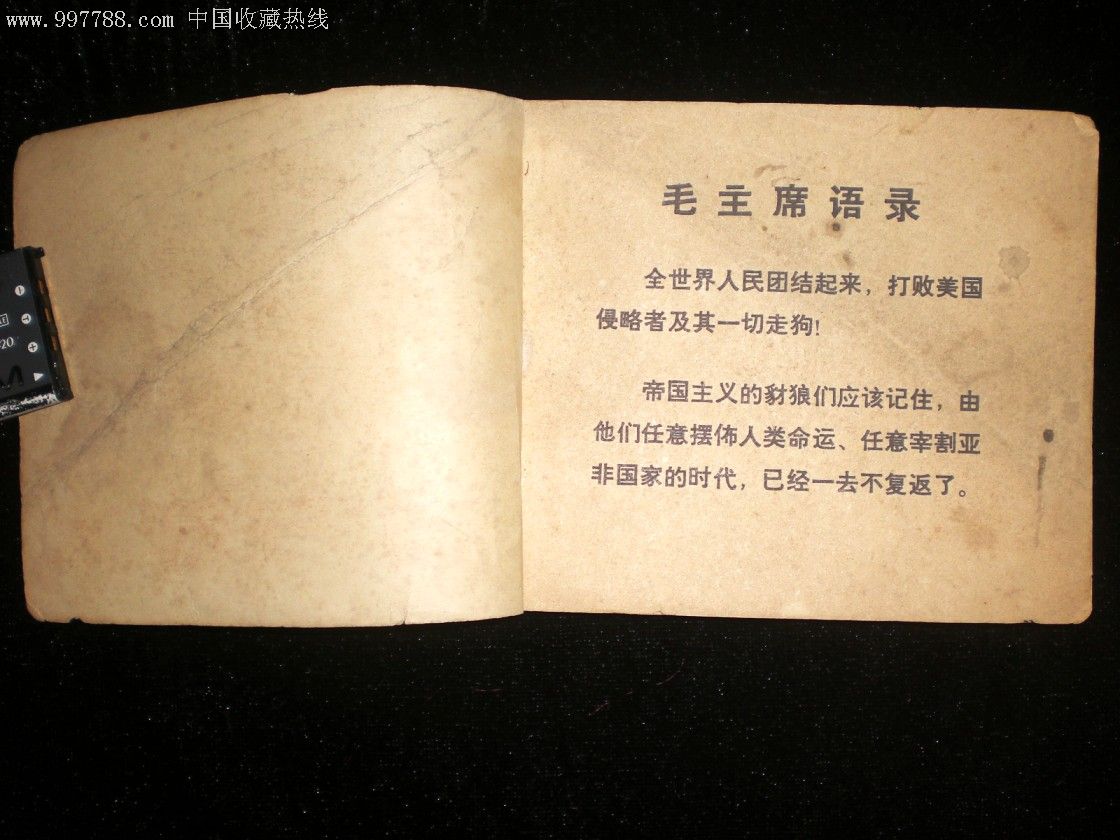 www.997788.com 中国收藏热线
毛主席语录
全世界人民团结起来，打败美国
侵略者及其一切走狗！
帝国主义的豺狼们应该记住，由
他们任意摆佈人类命运、任意宰割亚
非国家的时代，已经一去不复返了。
20